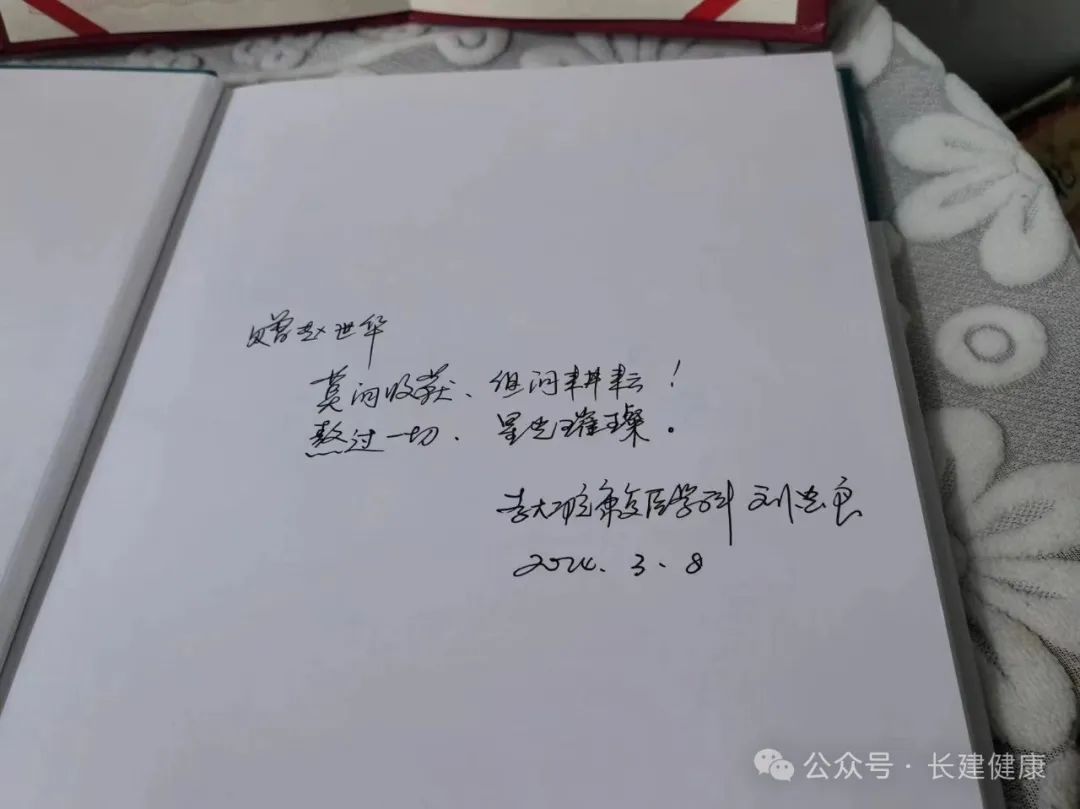 赠赵世华
莫问收获、但问耕耘！
熬过一切、星光璀璨。
李大  院康复医学科 刘忠良
2024.3.8
公众号 · 长建健康